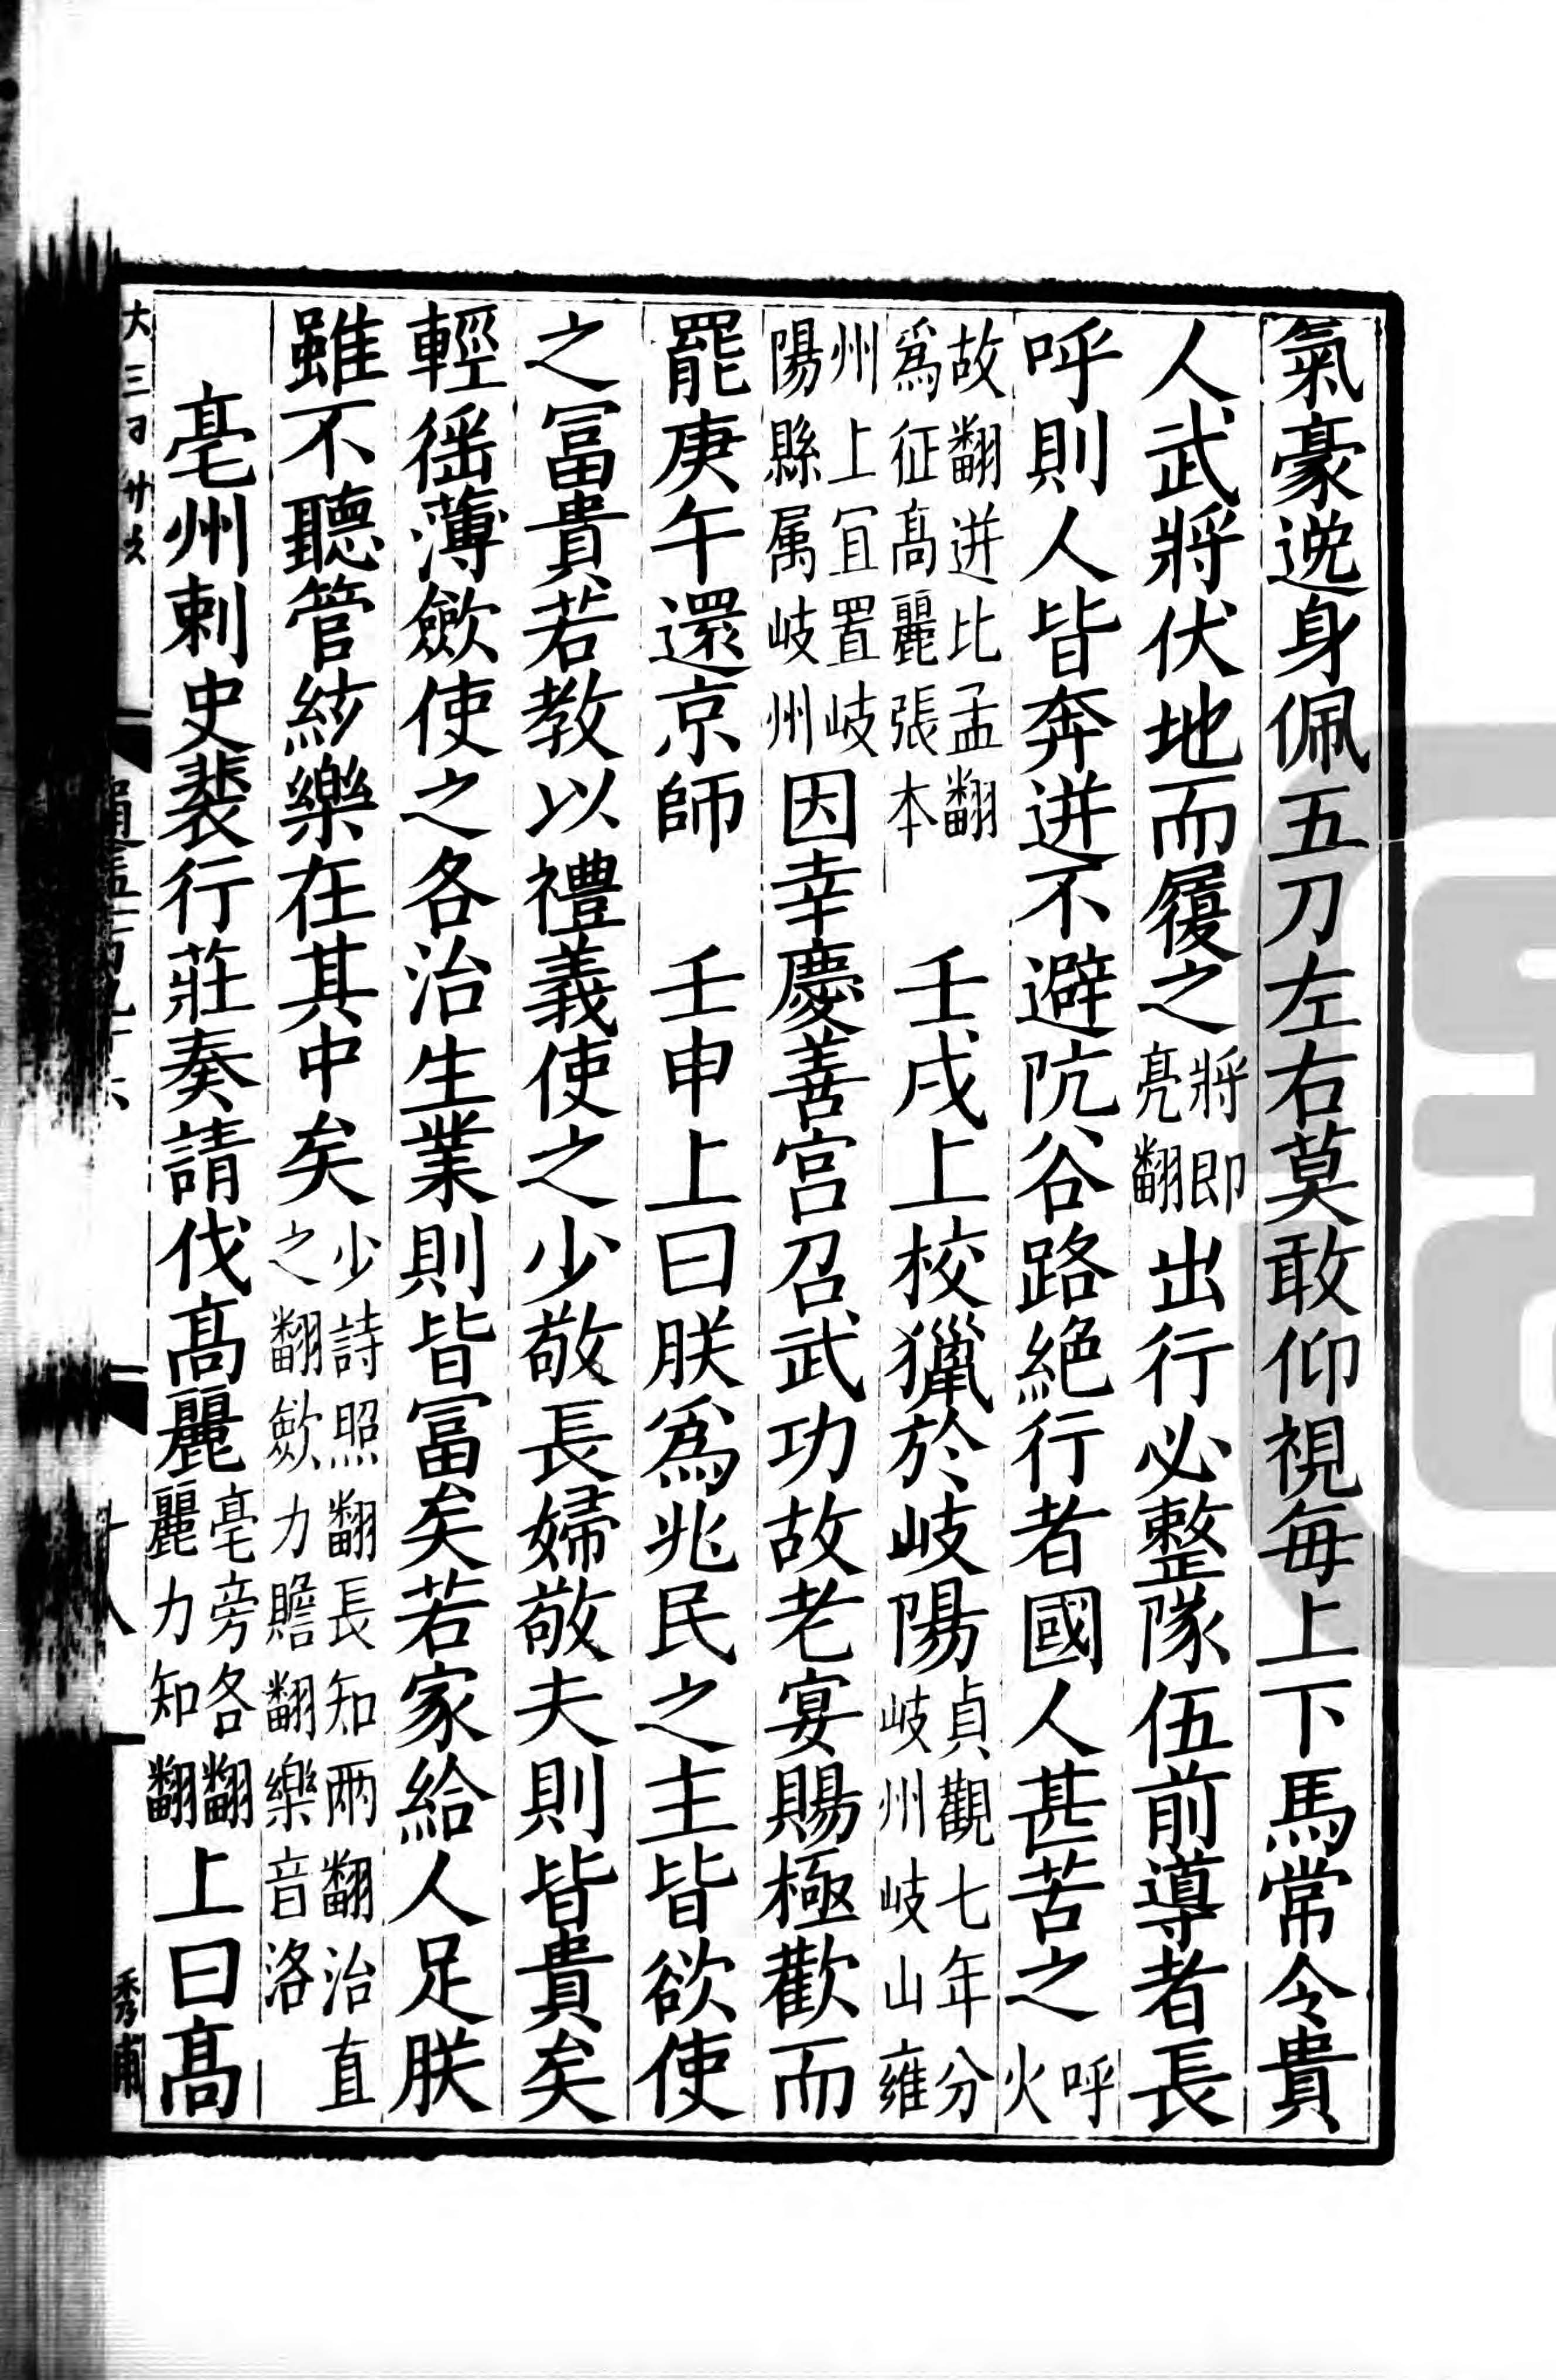 氣豪逸身佩五刀左右莫敢仰視每上下馬常令貴
人武將伏地而履之將即亮翻出行必整隊伍前導者長
呼則人皆奔迸不避阬谷路絶行者國人甚苦之呼火
故翻迸比孟翻爲征高麗張本　壬戌上校獵於岐陽貞觀七年分岐州岐山雍
州上宜置岐陽縣属岐州因幸慶善宫召武功故老宴賜極歡而
罷庚午還京師　壬申上曰朕爲兆民之主皆欲使
之富貴若教以禮義使之少敬長婦敬夫則皆貴矣
輕徭薄斂使之各治生業則皆富矣若家給人足朕
雖不聽管絃樂在其中矣少詩照翻長知兩翻治直之翻斂力贍翻樂音洛
亳州刺史裴行莊奏請伐高麗亳旁各翻麗力知翻上曰高
大三
秀甫